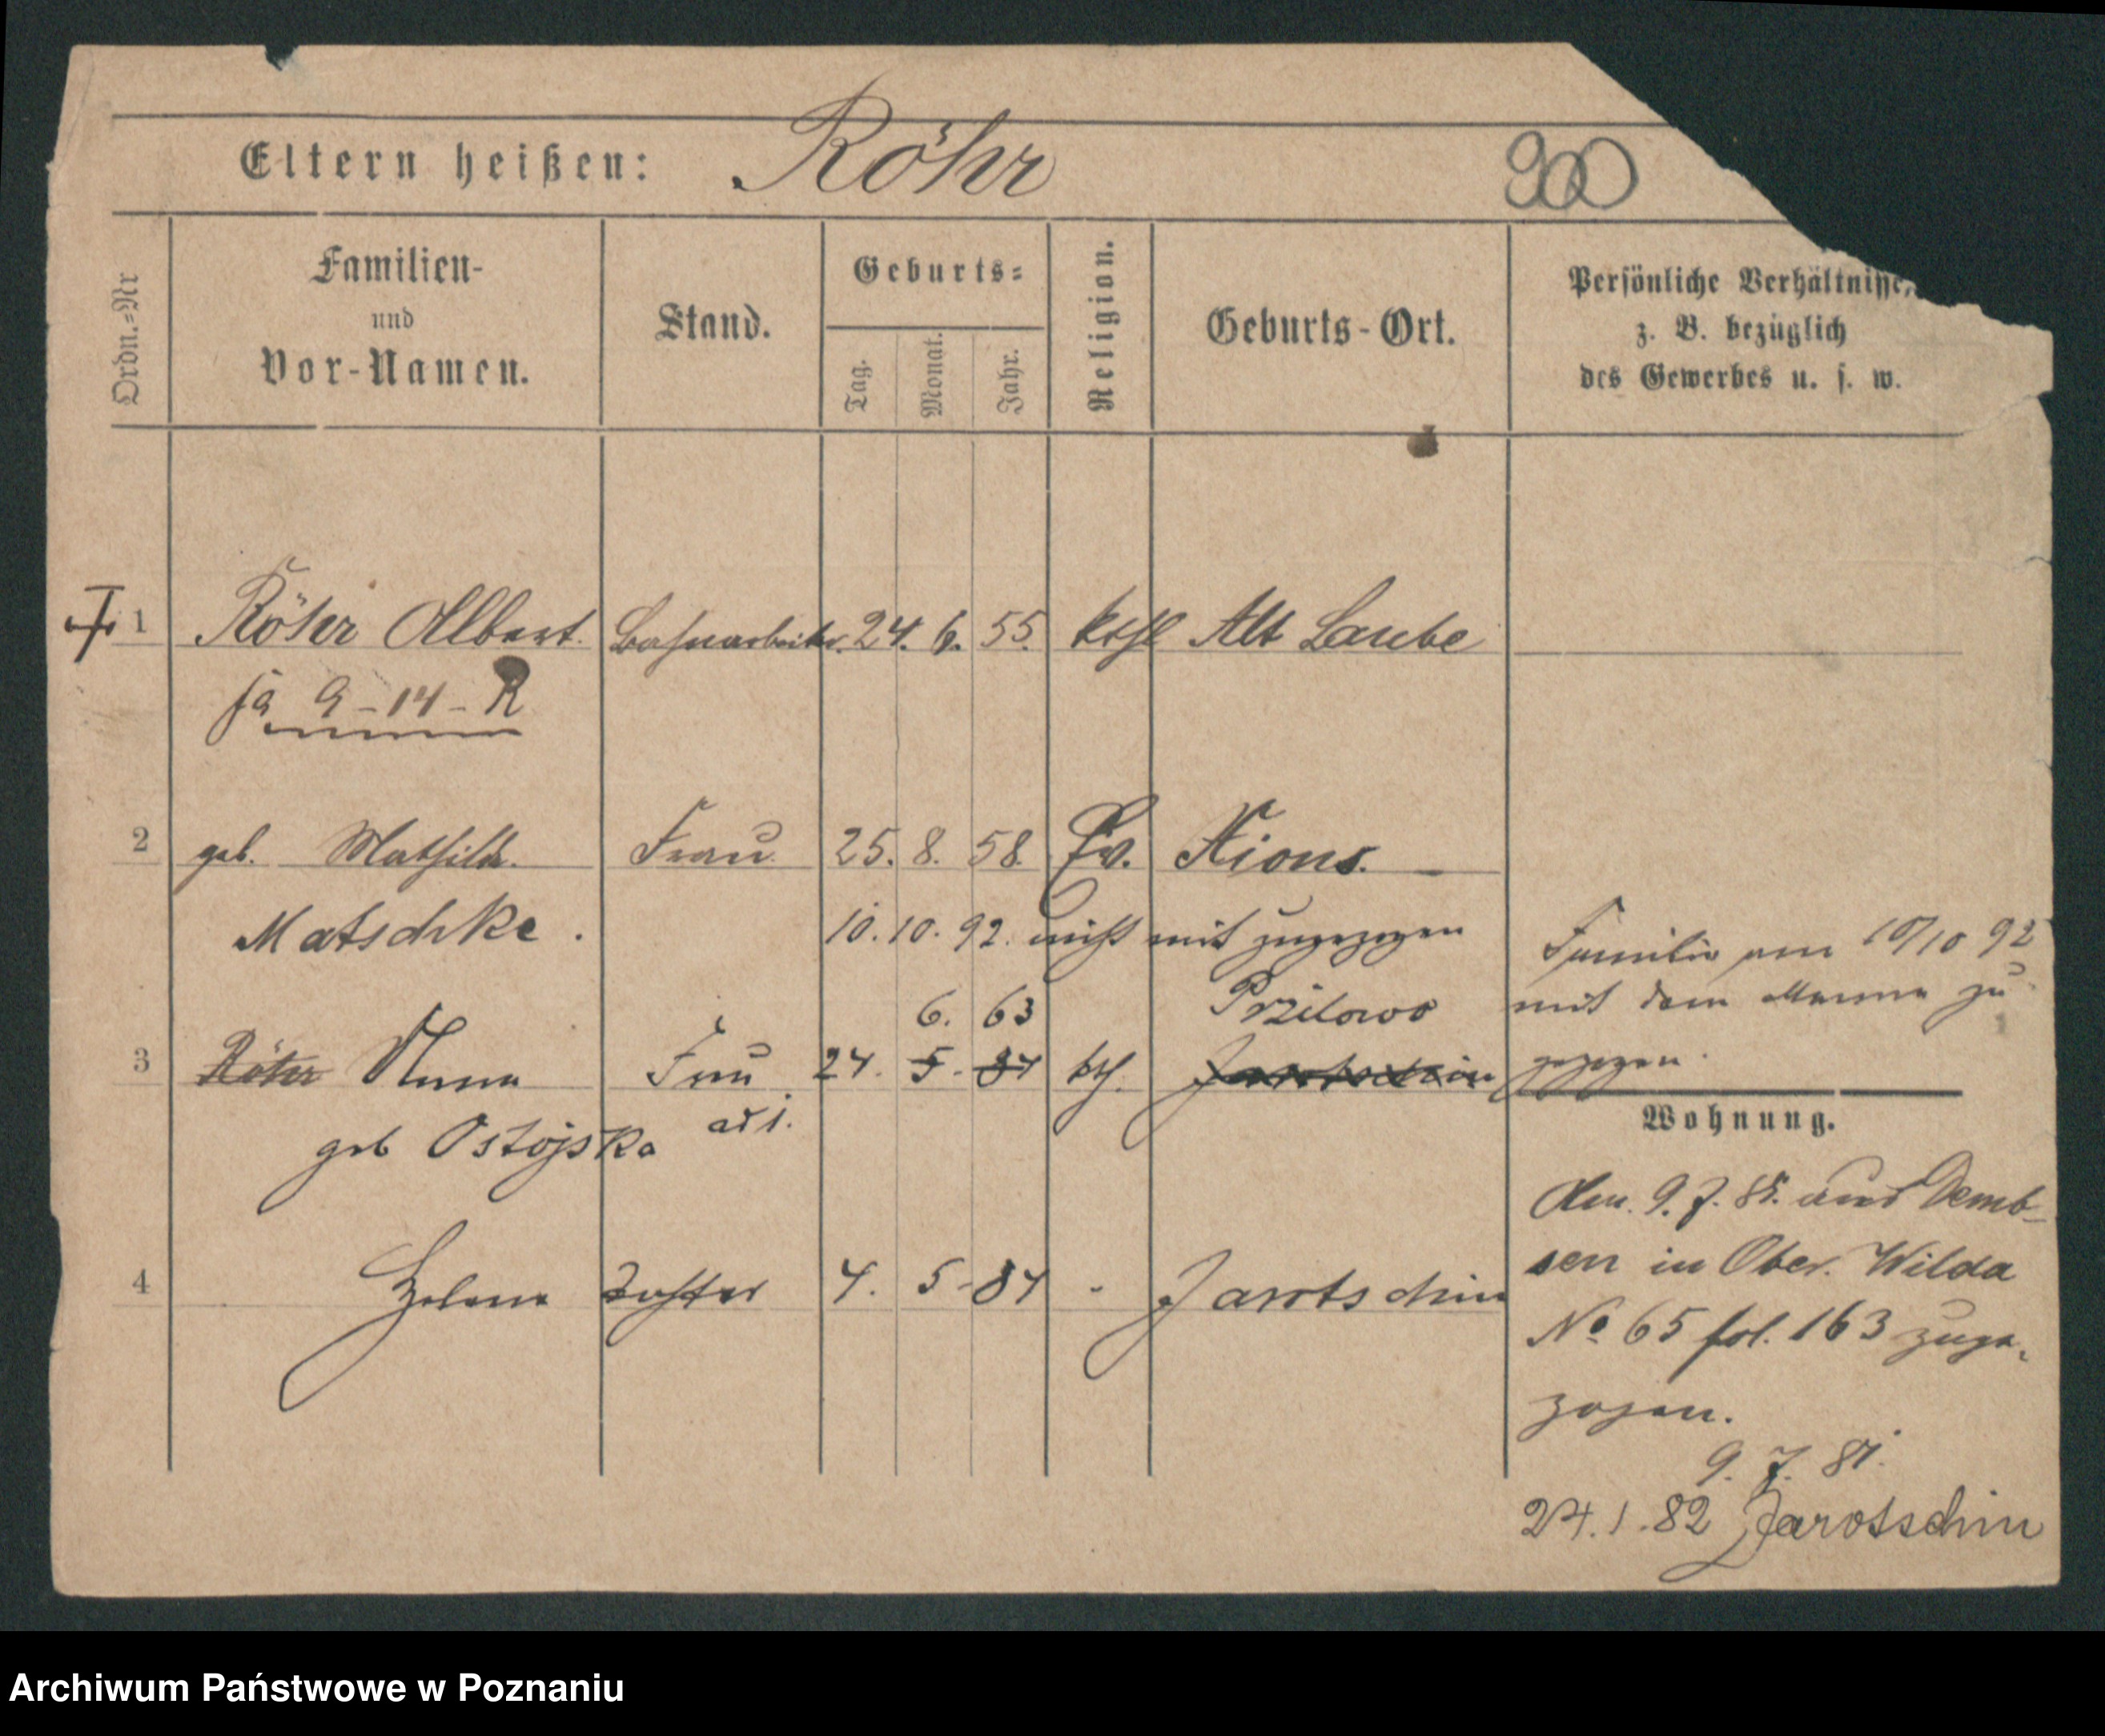 Eltern heißen: Röhr 200
Ordn.=Nr
Familien-
und
Vor-Namen.
Stand.
Geburts=
Tag.
Monat.
Jahr.
Religion.
Geburts-Ort.
Persönliche Verhältnisse,
z. B. bezüglich
des Gewerbes u. s. w.
1 Röhr Albert Bahnarbeiter. 24. 6. 55. kthl Alt Laube
9-14-R
2 geb. Mathilde. Frau 25. 8. 58. Ev. Xions.
Matschke. 10. 10. 92. nicht mit zugezogen
Familie am 10/10 92
mit dem Manne zu
gezogen.
6. 63
3 Röhr Anna Frau 24. 5. 84 kth. Jarotschin
geb Ostojska
4 Helene Tochter 4. 5-84 - Jarotschin
Wohnung.
9. 7. aus Demb-
sen in Ober. Wilda
No 65 fol. 163 zuge-
zogen.
9. 7.
24. 1. 82 Jarotschin
Archiwum Państwowe w Poznaniu